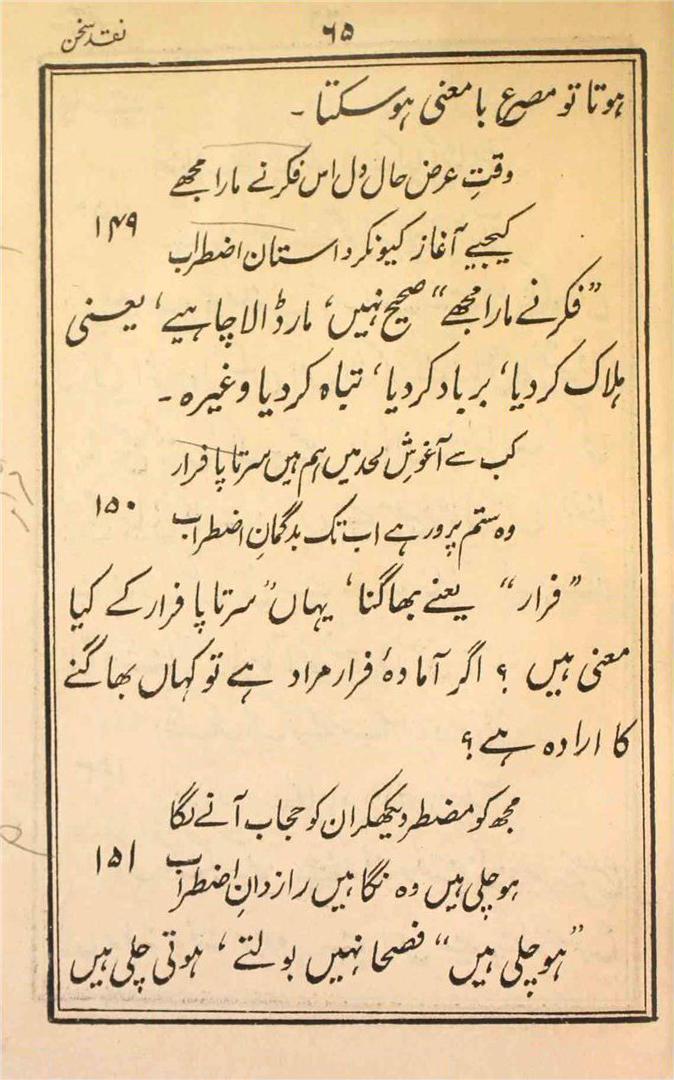 نقد سخن
۶۵
ہوتا تو مصرع با معنی ہو سکتا ۔
وقتِ عرض حال دل اس فکر نے مارا مجھے
کیجیے آغاز کیونکر داستان اضطراب ۱۴۹
”فکر نے مارا مجھے“ صحیح نہیں، مار ڈالا چاہیے، یعنی
ہلاک کر دیا، برباد کر دیا، تباہ کر دیا وغیرہ ۔
کب سے آغوشِ لحد میں ہم ہیں سرتا پا فرار
وہ ستم پرور ہے اب تک بدگمانِ اضطراب ۱۵۰
”فرار“ یعنے بھاگنا، یہاں ”سرتا پا فرار کے کیا
معنی ہیں ؟ اگر آمادۂ فرار مراد ہے تو کہاں بھاگنے
کا ارادہ ہے ؟
مجھ کو مضطر دیکھکر ان کو حجاب آنے لگا
ہو چلی ہیں وہ نگاہیں راز دانِ اضطراب ۱۵۱
”ہو چلی ہیں“ فصحا نہیں بولتے، ہوتی چلی ہیں